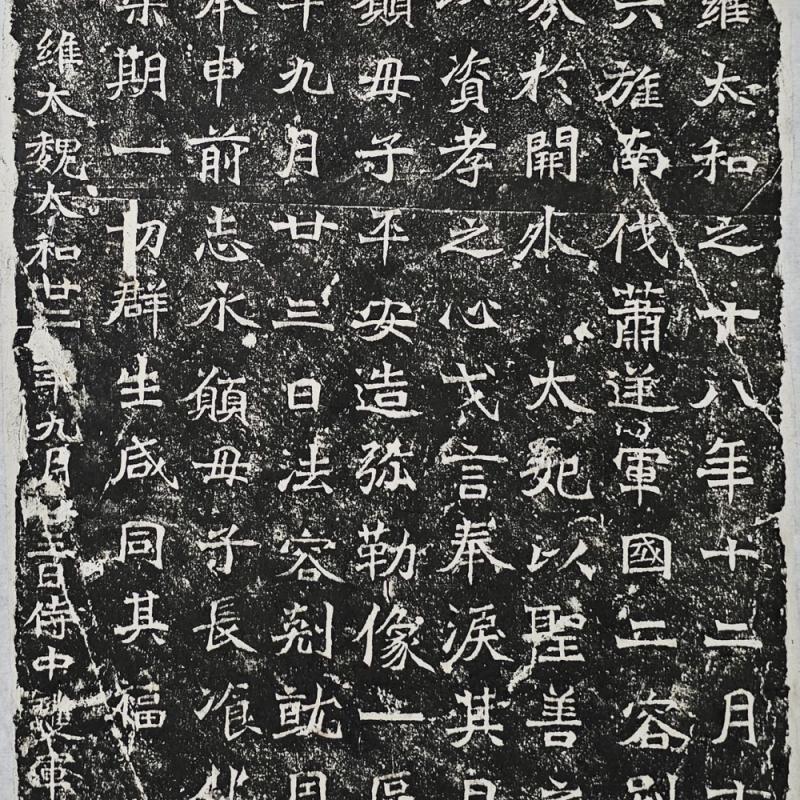 維太和之十八年十二月十
六旌南伐蕭逆軍國二容別
分於開外太妃以聖善之
以資孝之心戈言奉淚其日
願母子平安造弥勒像一區
年九月廿三日法容剋就因
本申前志永願母子長飡化
榮期一切群生咸同其福
維太魏太和廿二年九月廿三日侍中護軍